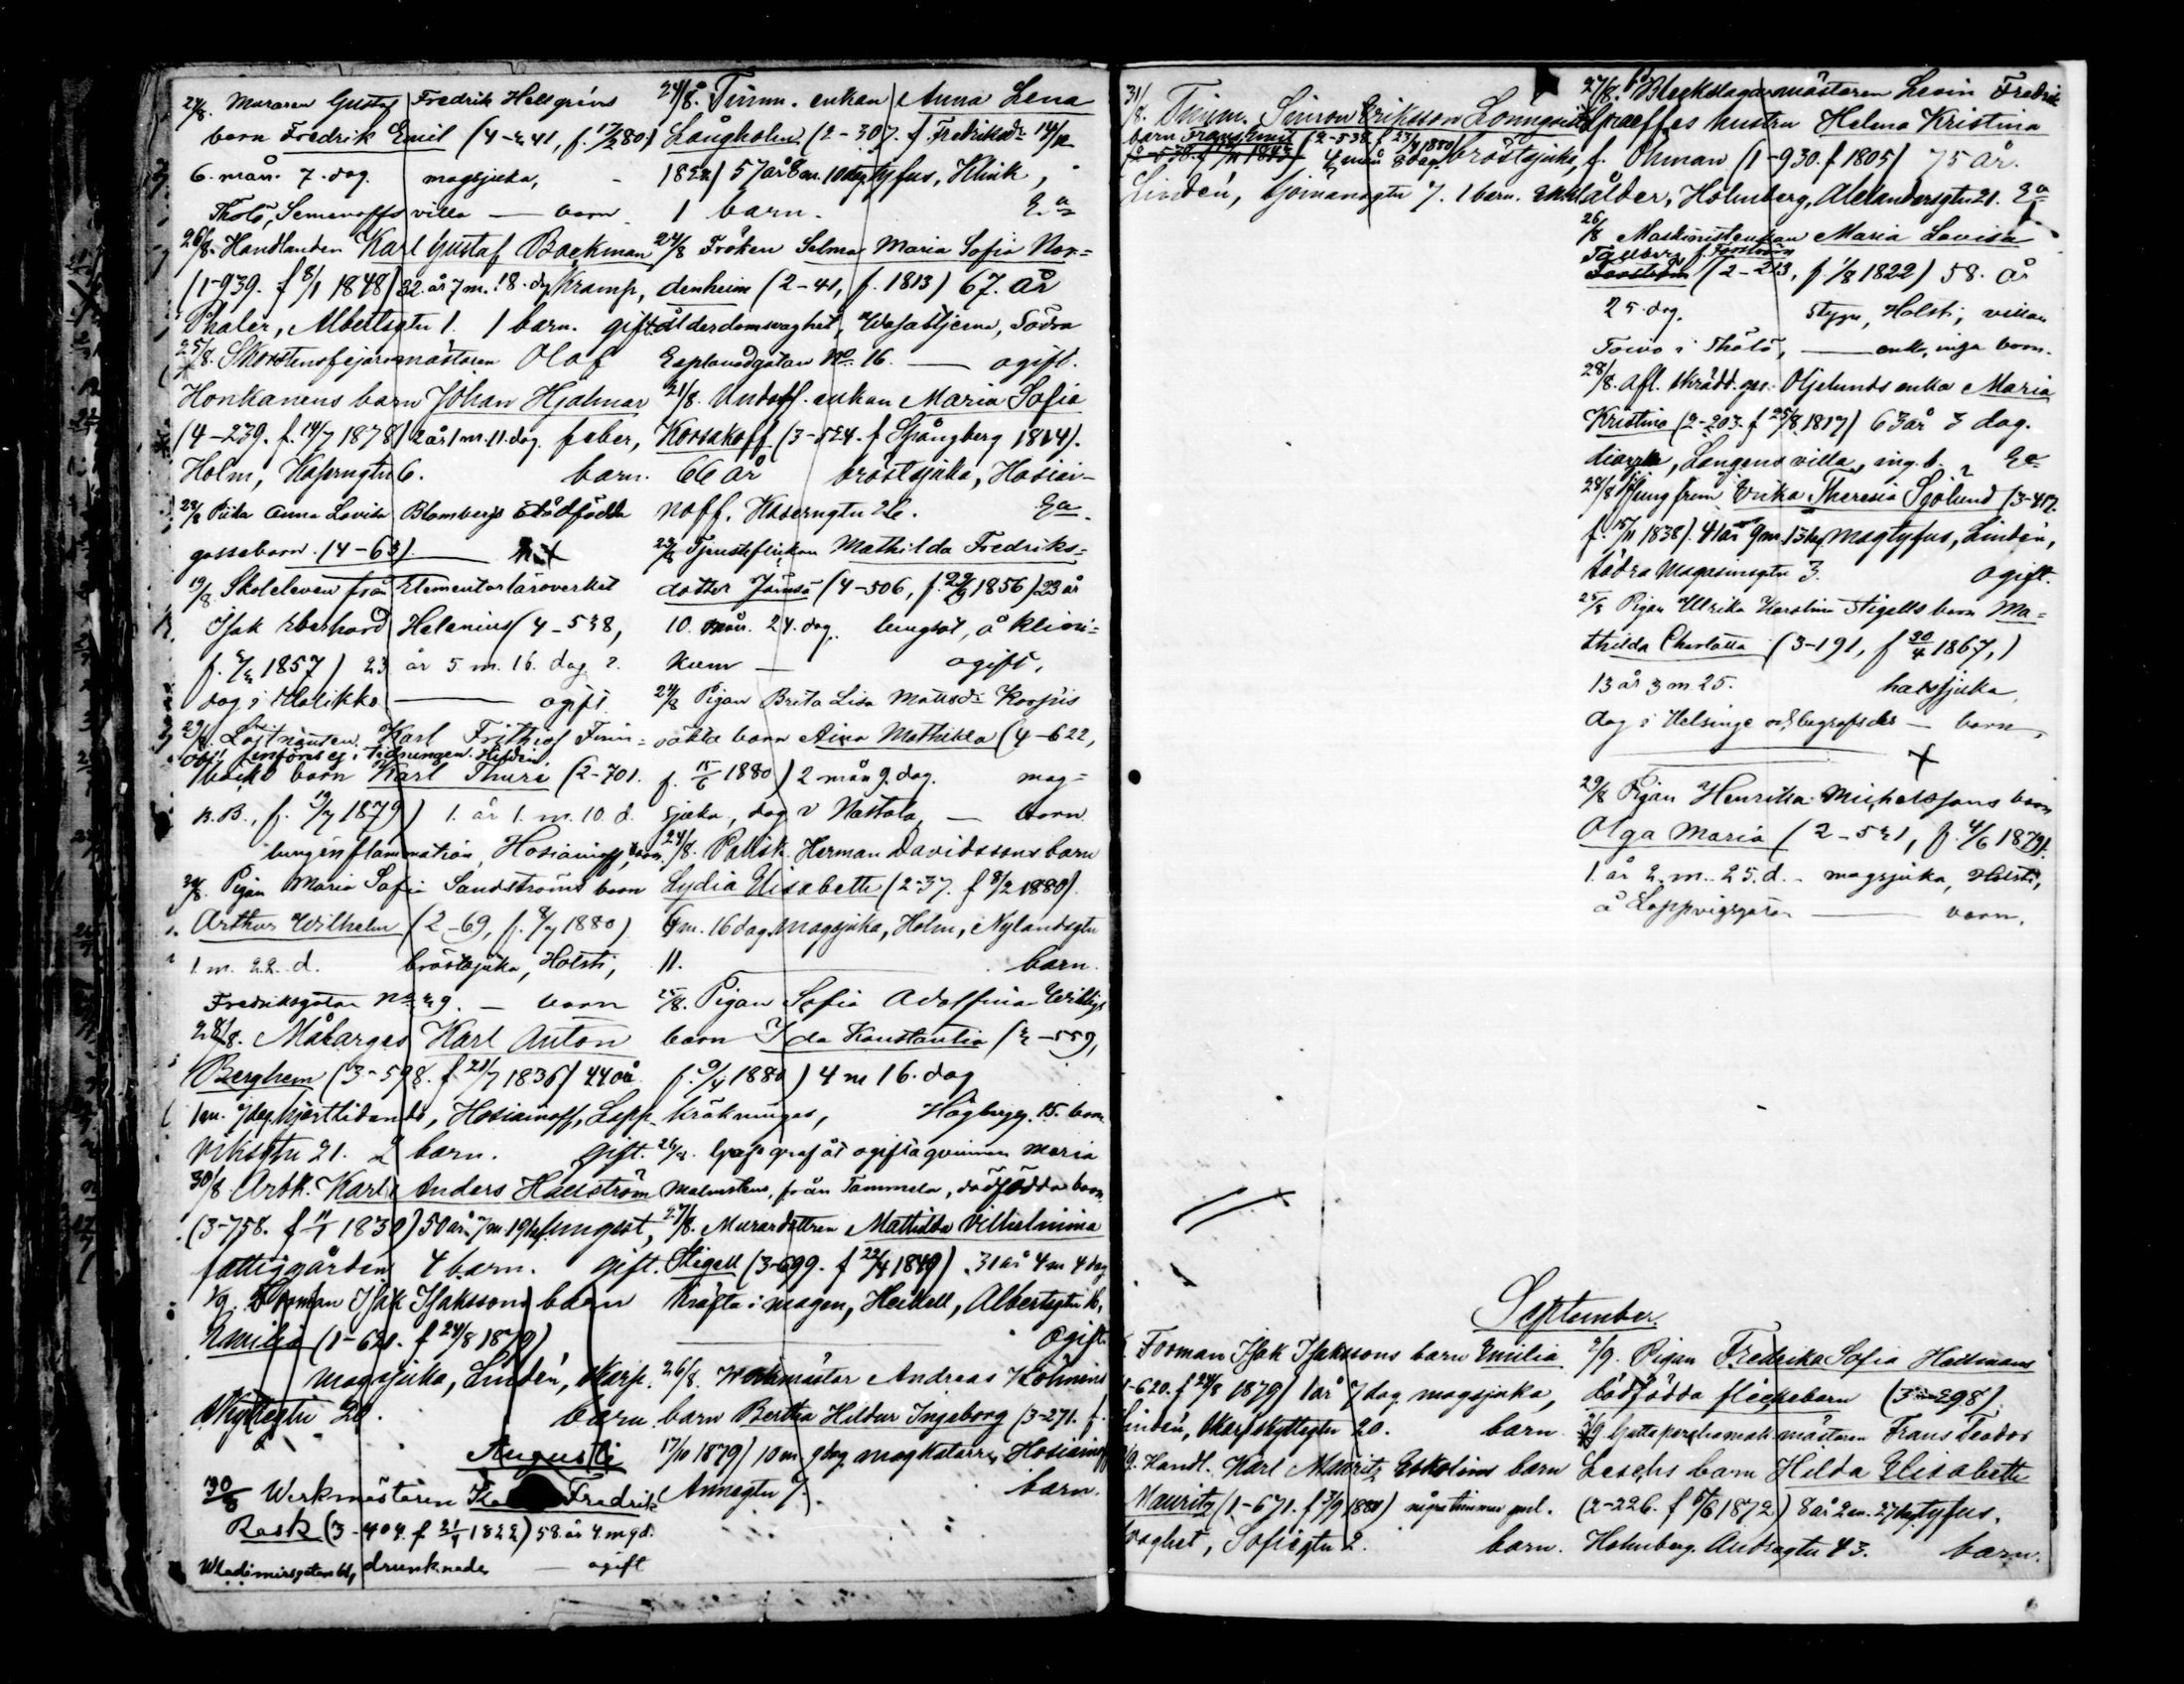 27/8. Muraren Gustaf Fredrik Hellgréns
barn Fredrik Emil (4-241, f. 17/2 80)
6. mån. 7. dag. magsjuka,
Thölö, Semenoffs villa — barn
26/8. Handlanden Karl Gustaf Backman
(1-939. f 8/1 1848) 32. år 7 m. 18. dg Kramp,
Thaler, Albertsgtn 1. 1 barn. gift.
25/8. Skorstensfejaremästaren Olof
Honkanens barn Johan Hjalmar
(4-239. f. 14/7 1878) 2 år 1 m. 11. dag. feber,
Holm, Kaserngtn 6. barn.
28/8 Anna Lovisa Blombergs dödfödda
gossebarn. (4-63).
19/8 Skoleleven från Elementarläroverket
Isak Eberhard Helenius (4-528,
1857) 23 år 5 m. 16. dag
dog i Halikko — ogift.
29/8. Löjtnanten Karl Frithiof Finn-
Obs! Införes ej i tidningen. Hildén
bäcks barn Karl Thure (2-701.
B.B., f. 19/7 1879) 1. år 1. m. 10. d.
lunginflammation, Hosiainoff, barn.
30/8. Pigan Maria Sofia Sandströms barn
Arthur Wilhelm (2-69, f. 8/7 1880)
1. m. 22. d. bröstsjuka, Holsti,
Fredriksgatan No 29. — barn
28/8. Målarges Karl Anton
Berghem (3-598. f. 21/7 1836) 44 år
1 m. 7 dag. hjertlidande, Hosiainoff, Lapp-
viksgtn 21. 2 barn. gift.
30/8 Arbk. Karl Anders Hällström
(3-758. f 11/1 1830) 50 år. 7 m. 19 dag lungsot,
fattiggården 4 barn. gift.
1/9. Forman Isak Isakssons barn
Emilia (1-620. f 24/8 1879)
magsjuka, Lindén, Skarp-
skyttegtn 20. barn.
Augusti
30/8 Werkmästaren Fredrik
Rask (3-404. f 21/4 1822) 58. år 4. m 9 d.
Wladimirsgatan 61, drunknade — ogift
24/8. Timm. enkan Anna Lena
Långholm (2-307. f. Fredriksdr 14/12
1822) 57 år 8 m. 10 dag tyfus, Klinik,
1 barn. Ea
24/8 Fröken Selma Maria Sofia Nor-
denheim (2-41, f. 1813) 67. år
ålderdomsvaghet, Wasastjerna, Södra
Esplanadgatan No 16. — ogift.
21/8. Undoff. enkan Maria Sofia
Korsakoff (3-524. f Spångberg 1814).
66 år bröstsjuka, Hosiai-
noff, Kaserngtn 26. Ea.
23/8 Tjensteflickan Mathilda Fredriks-
dotter Jämsä (4-506, f. 29/9 1856) 23 år
10. mån. 24. dag. lungsot, å klini-
kum — ogift.
24/8 Pigan Brita Lisa Mattsdr Korpis
oäkta barn Aina Mathilda (4-622,
f. 15/6 1880) 2 mån 9. dag. mag-
sjuka, dog i Nastola, — barn.
24/8. Polisk. Herman Davidssons barn
Lydia Elisabeth (2-37. f 8/2 1880).
6 m. 16 dag. magsjuka, Holm, Nylandsgtn
11. — barn.
25/8. Pigan Sofia Adolfina
barn Ida Konstantia (2-559,
f. 9/4 1880) 4 m 16. dag
kräkningar, Högbergsg. 15. barn
26/8. graf åt ogifta qvinnan Maria
Malmstens, från Tammela, dödfödda barn.
27/8. Murardottren Mathilda Vilhelmina
Stigell (3-699. f 23/4 1849) 31 år 4 m 4 dag
kräfta i magen, Heikell, Albertsgtn 16.
— Ogift.
26/8. Werkmästar Andreas Kölmins
barn Bertha Hildur Ingeborg (3-271. f.
17/10 1879) 10 m. 9 dag. magkatarr, Hosiainoff,
Annegtn 7. barn.
31/8. Timm. Simon Eriksson Lönnqvists
barn Frans Emil (2-538. f 23/4 1880)
4 mån 8 dag. bröstsjuka,
Lindén, 7. 1 barn.
27/8. Bleckslagarmästaren Levin Fredrik
Graeffes hustru Helena Kristina
f. Öhman (1-930. f 1805) 75 år.
ålder, Holmberg, Alexandersgtn 21. Ea
26/8 Maskinistenkan Maria Lovisa
Tallberg f. Forström
Forström (2-213, f. 1/8 1822) 58. år
25. dag. Styng, Holsti, villan
Toivo i Thölö, — enk, inga barn.
28/8. Afl. skrädd. ges. Öljelunds enka Maria
Kristina (2-203. f 25/8 1817) 63 år 3 dag.
diarrhe, Langens villa, ing. b. Ea
28/8 Jungfrun Erika Theresia Sjölund (3-417.
f. 15/11 1838). 41 år 9 m. 13 dag. magtyfus, Lindén,
Södra Magasinsgtn 3. ogift.
25/8 Pigan Ulrika Karolina Stigells barn Ma-
thilda Charlotta (3-191, f 30/4 1867,)
13 år 3 m 25. halssjuka,
dog i Helsinge och begrafs der — barn,
29/8 Pigan Henrika Michelssons barn
Olga Maria (2-521, f. 4/6 1879).
1. år 2. m. 25. d. magsjuka, Holsti,
å Lappvigsgatan — barn.
September.
Forman Isak Isakssons barn Emilia
1-620. f 24/8 1879) 1 år 7 dag. magsjuka,
Lindén, Skarpskyttegtn 20. barn.
Handl. Karl Mauritz Eskolins barn
Mauritz (1-671. f 3/9 1880) några timmar gml.
svaghet, Sofiegtn 2. barn.
2/9. Pigan Fredrika Sofia Hedmans
dödfödda flickebarn (3-298).
Guttaperchamak. mästaren Frans Teodor
Leschs barn Hilda Elisabeth
(2-226. f 5/6 1872) 8 år 2 m. 27 dag tyfus.
Holmberg. Andrégtn 43. barn.